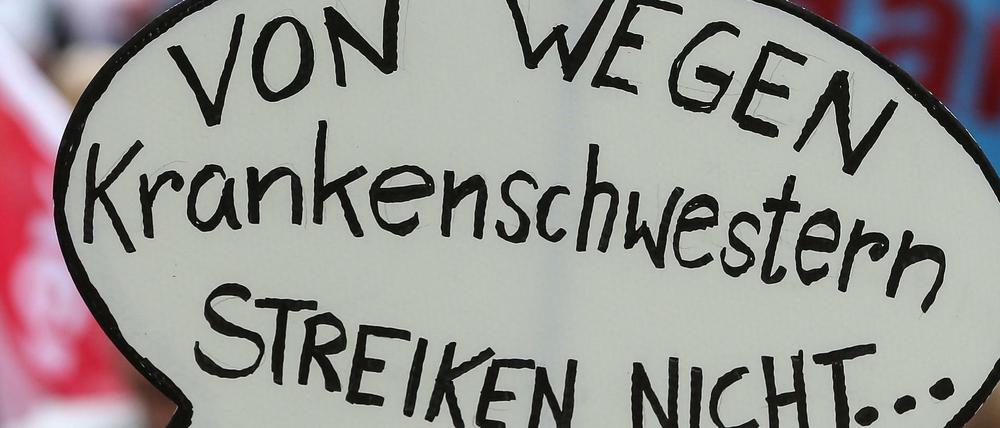 VON WEGEN
Krankenschwestern
STREIKEN NICHT...